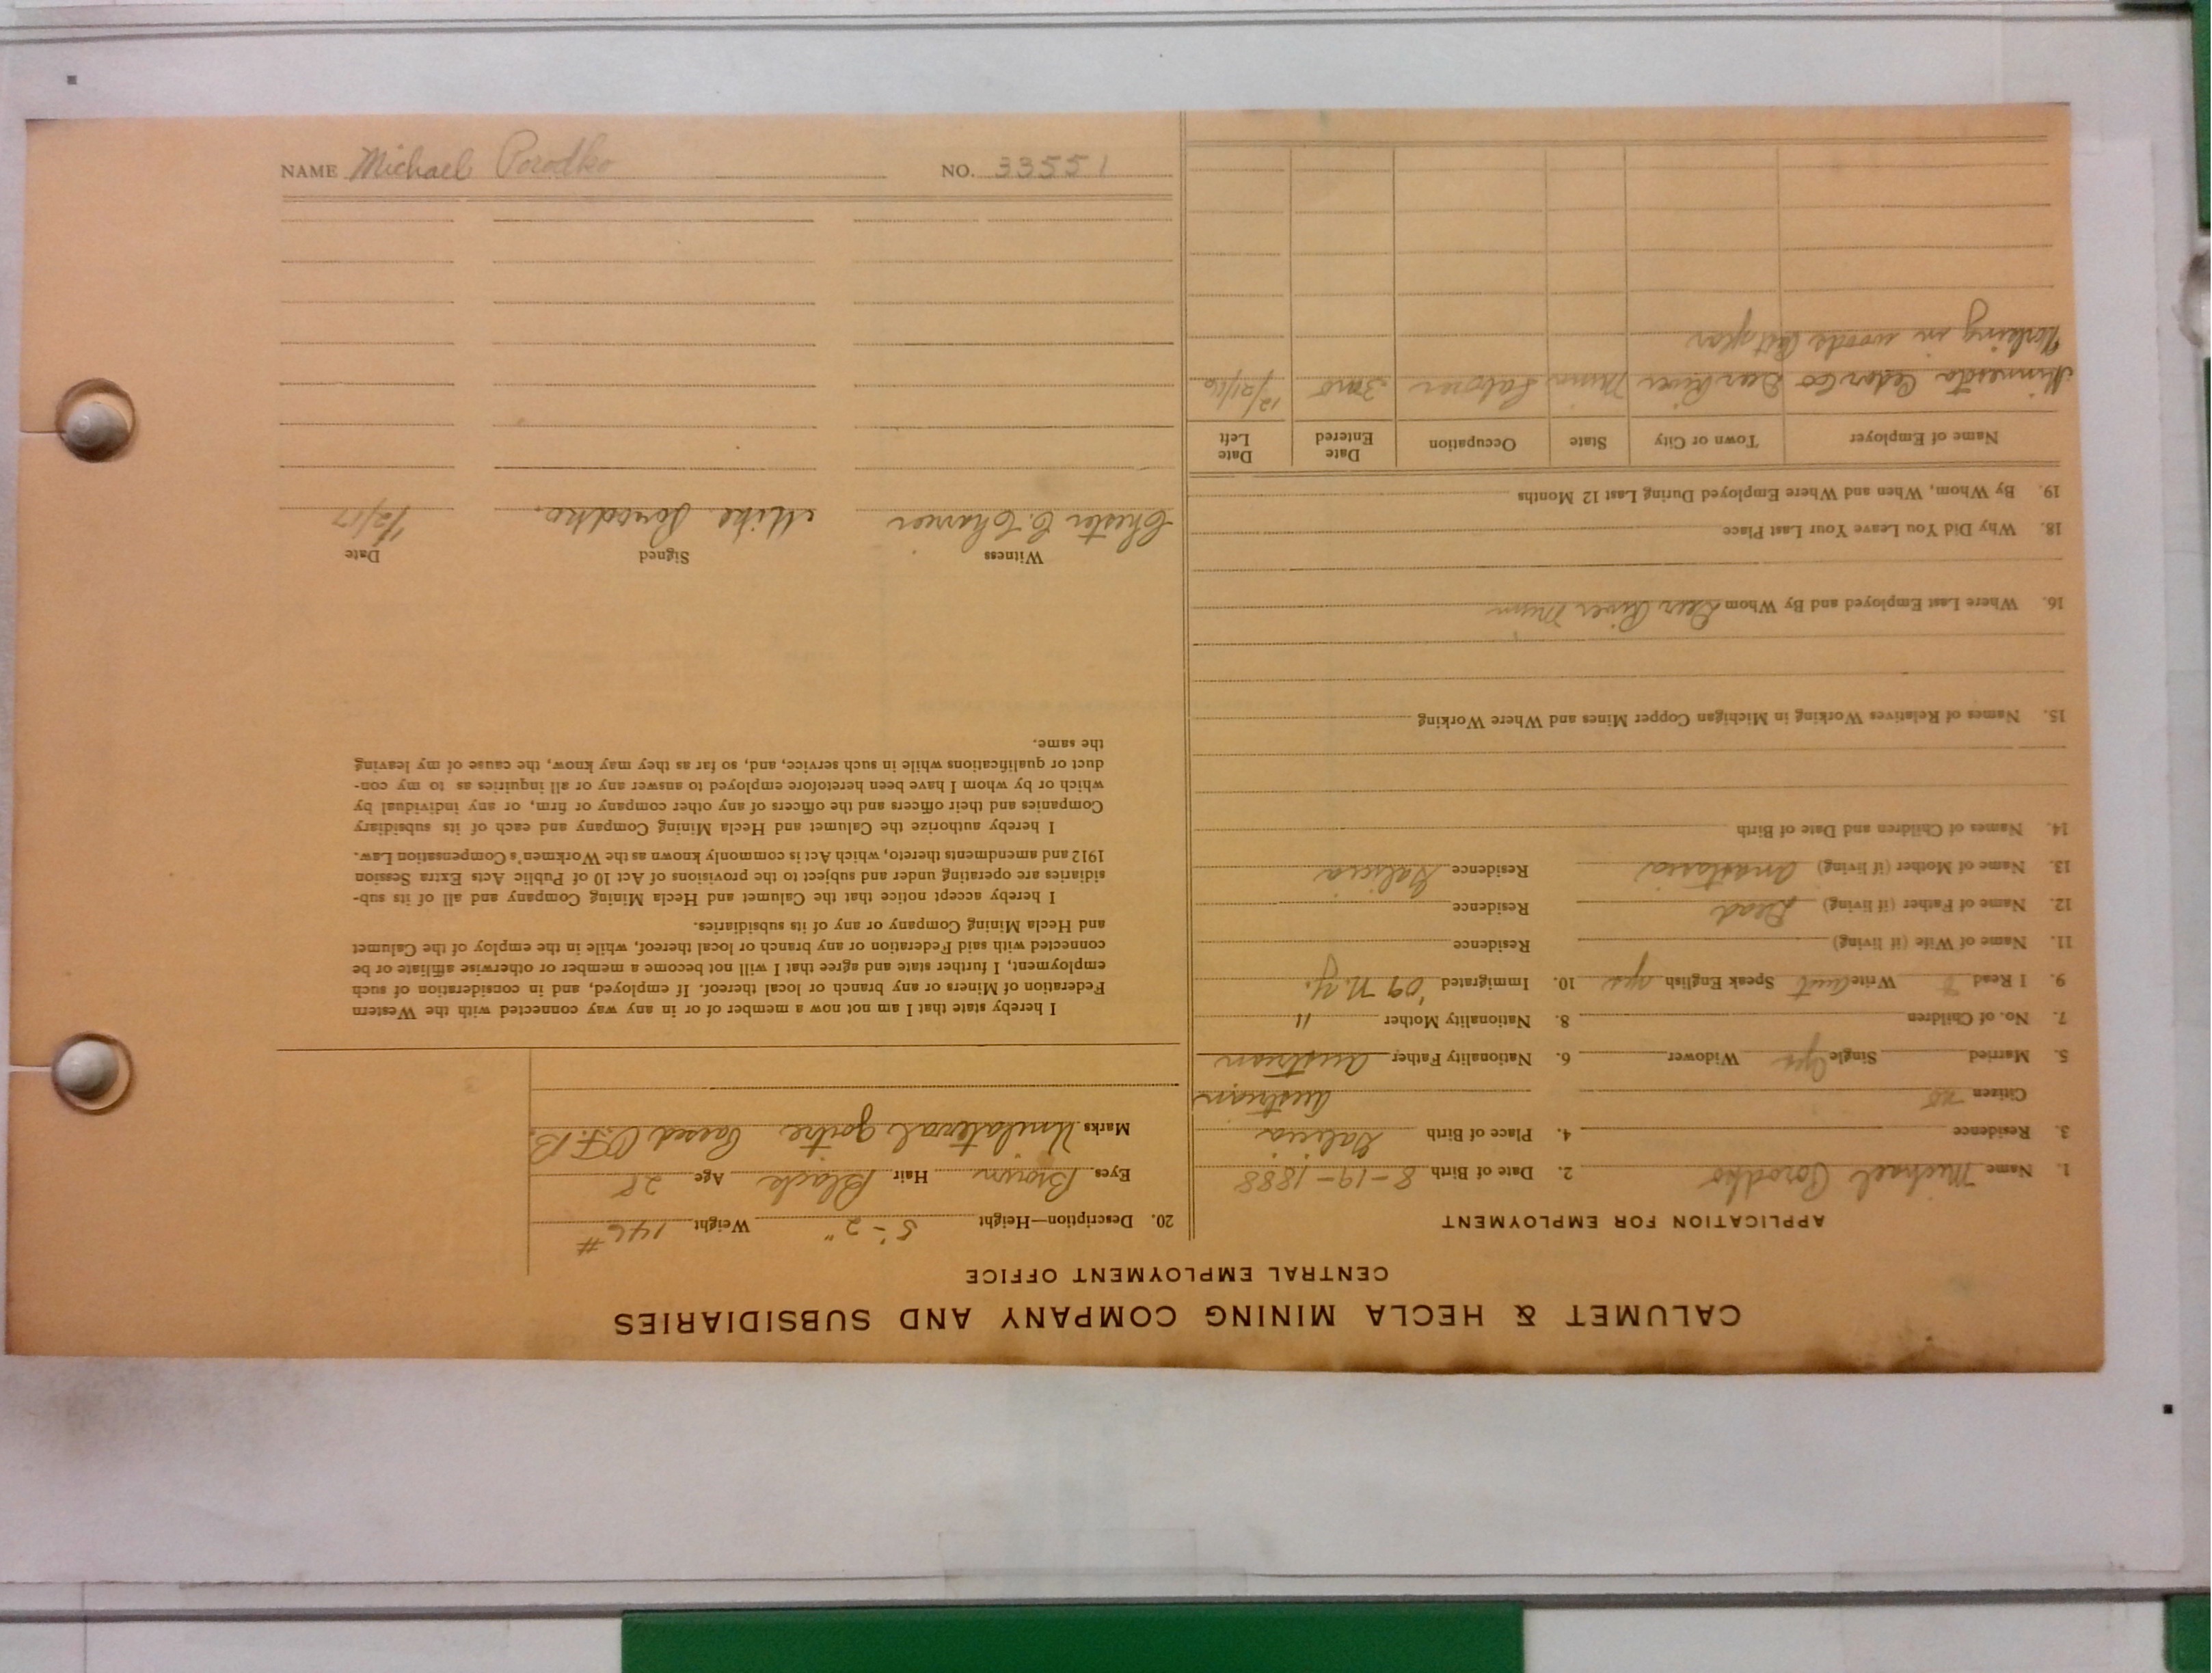 CALUMET & HECLA MINING COMPANY AND SUBSIDIARIES
CENTRAL EMPLOYMENT OFFICE
APPLICATION FOR EMPLOYMENT
1. Name Michael Porodko 2. Date of Birth 8-19-1888
3. Residence 4. Place of Birth Galicia
Citizen no Austrian
5. Married Single yes Widower 6. Nationality Father Austrian
7. No. of Children 8. Nationality Mother 11
9. I Read Write Aust Speak English yes 10. Immigrated '09 N.Y.
11. Name of Wife (if living) Residence
12. Name of Father (if living) Dead Residence
13. Name of Mother (if living) Anastasia Residence Galicia
14. Names of Children and Date of Birth
15. Names of Relatives Working in Michigan Copper Mines and Where Working
16. Where Last Employed and By Whom Deer River Minn
18. Why Did You Leave Your Last Place
19. By Whom, When and Where Employed During Last 12 Months
Name of Employer Town or City State Occupation Date Entered Date Left
Minnesota Cedar Co Deer River Minn Laborer 3 mo 12/21/16
Working in woods last year
20. Description—Height 5'-2" Weight 146#
Eyes Brown Hair Black Age 28
Marks Unilateral goitre Passed
I hereby state that I am not now a member of or in any way connected with the Western
Federation of Miners or any branch or local thereof. If employed, and in consideration of such
employment, I further state and agree that I will not become a member or otherwise affiliate or be
connected with said Federation or any branch or local thereof, while in the employ of the Calumet
and Hecla Mining Company or any of its subsidiaries.
I hereby accept notice that the Calumet and Hecla Mining Company and all of its sub-
sidiaries are operating under and subject to the provisions of Act 10 of Public Acts Extra Session
1912 and amendments thereto, which Act is commonly known as the Workmen's Compensation Law.
I hereby authorize the Calumet and Hecla Mining Company and each of its subsidiary
Companies and their officers and the officers of any other company or firm, or any individual by
which or by whom I have been heretofore employed to answer any or all inquiries as to my con-
duct or qualifications while in such service, and, so far as they may know, the cause of my leaving
the same.
Witness Signed Date
Chester C. Mike Porodko. 1/2/17
NAME Michael Porodko NO. 33551